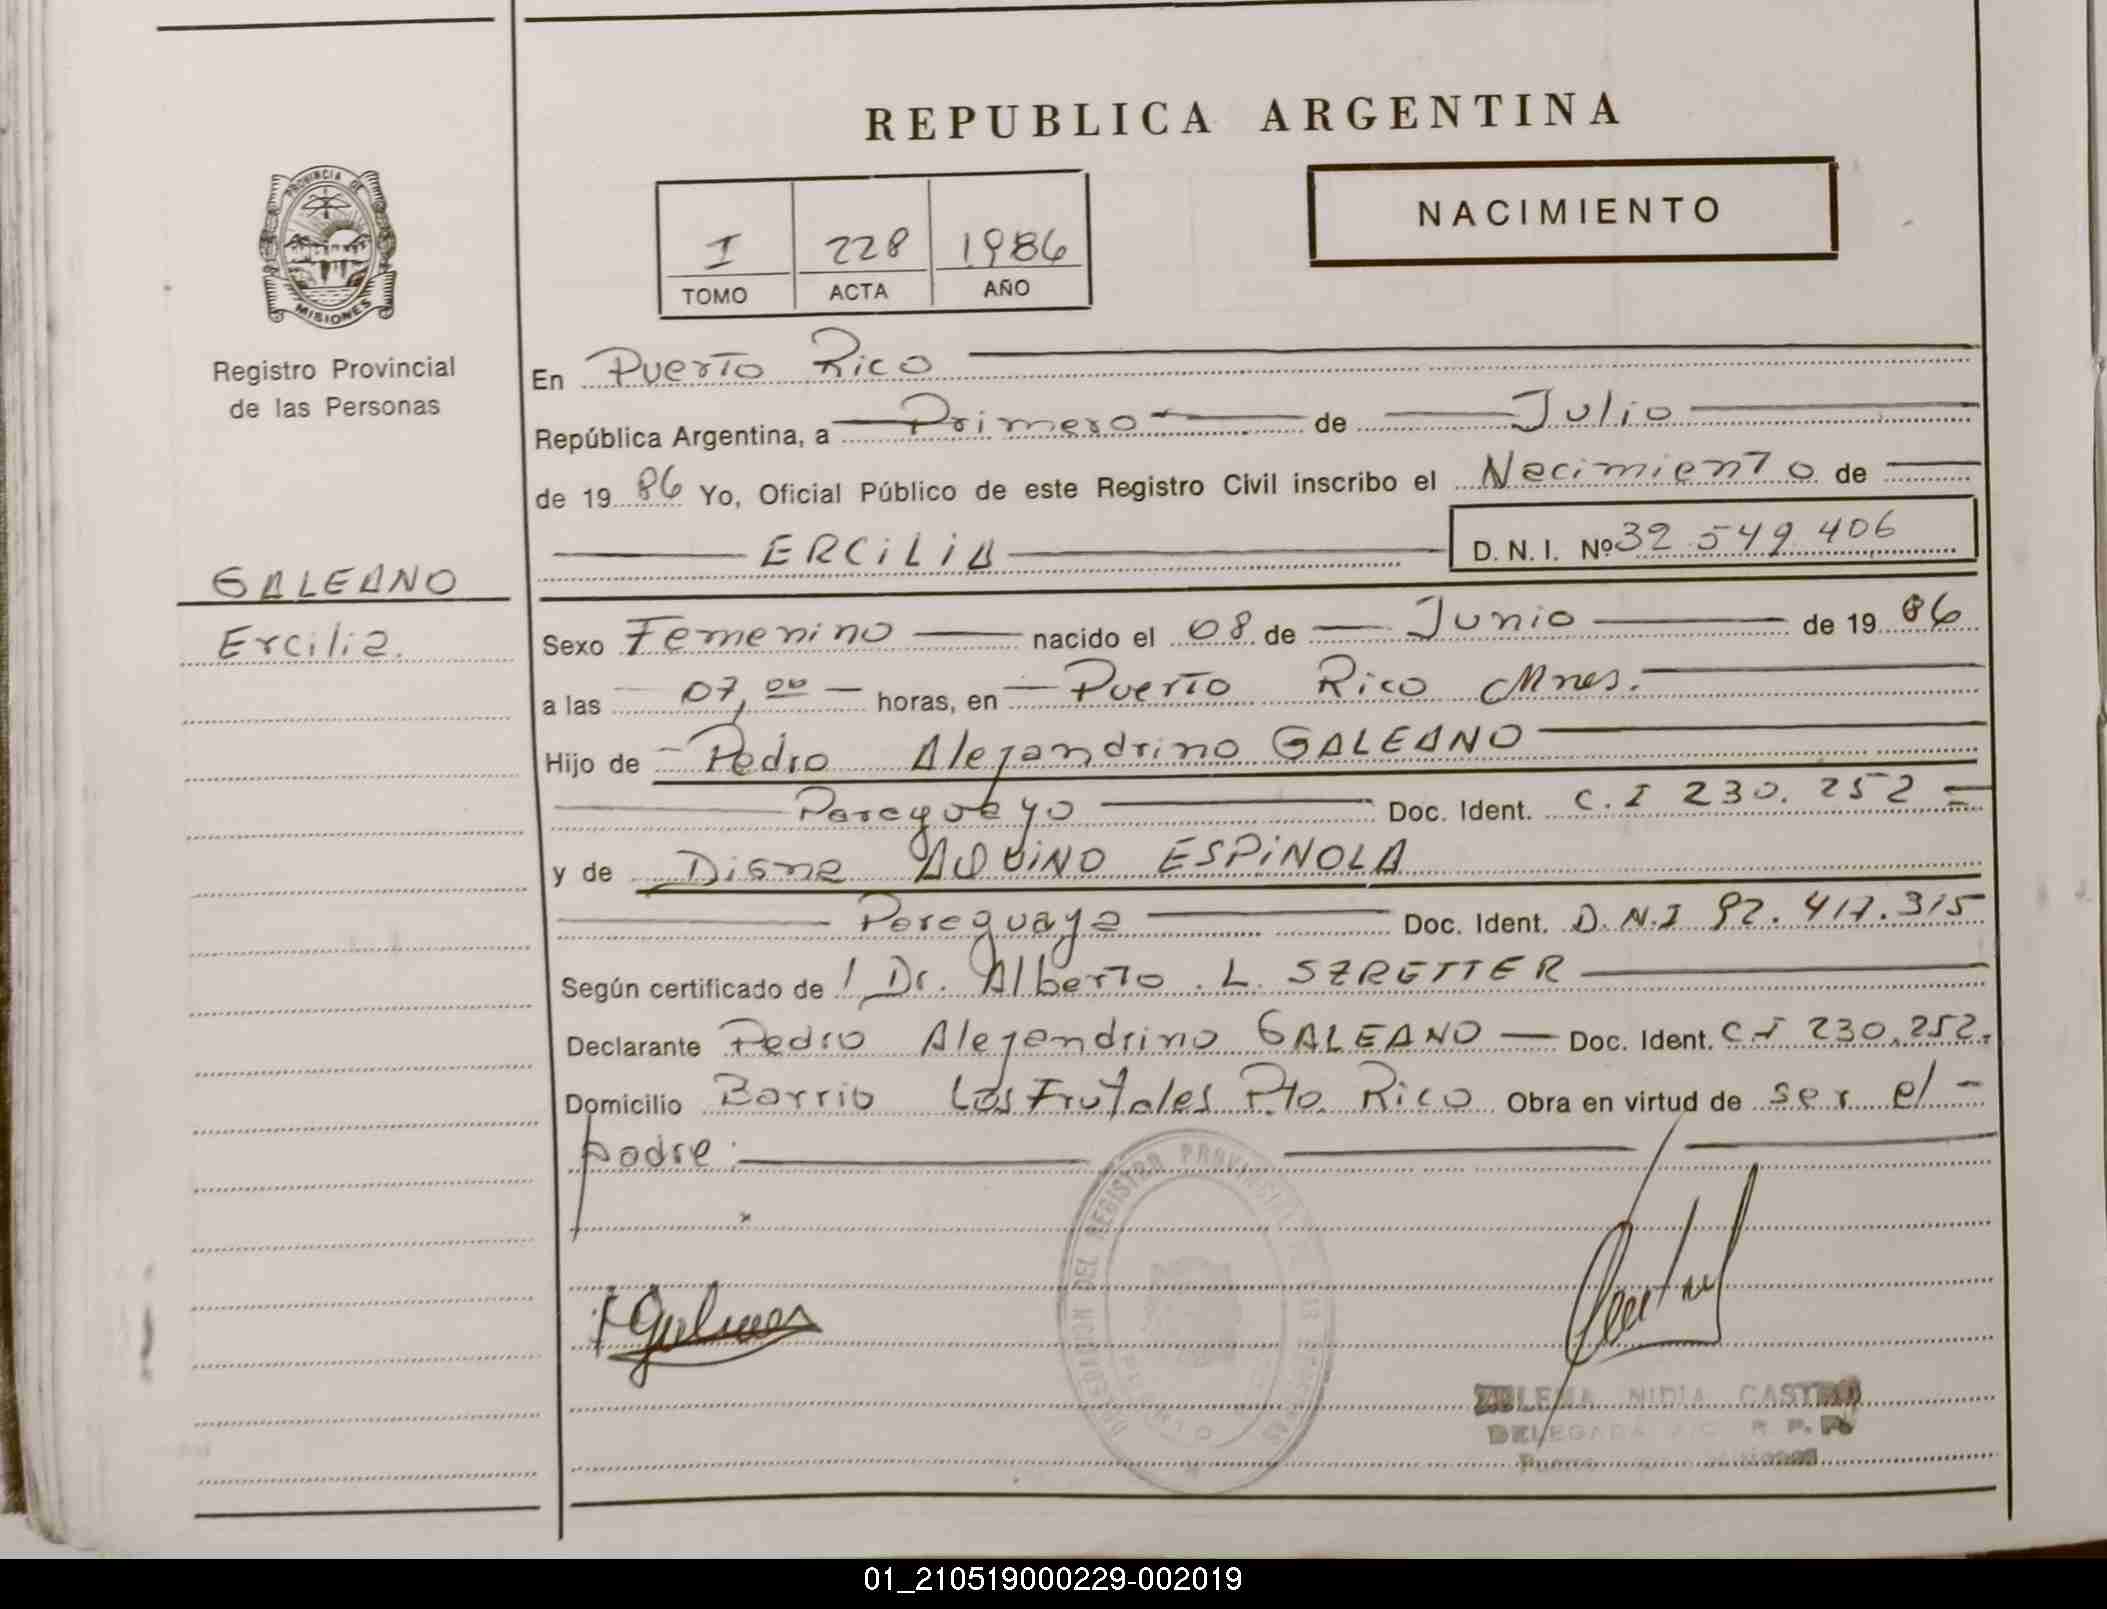 REPUBLICA ARGENTINA
NACIMIENTO
I 228 1986
TOMO ACTA AÑO
PROVINCIA DE
MISIONES
Registro Provincial
de las Personas
En Puerto Rico
República Argentina, a Primero de Julio
de 1986 Yo, Oficial Público de este Registro Civil inscribo el Nacimiento de
ERCiLiA D. N. I. Nº 32 549 406
GALEANO
Ercilia.
Sexo Femenino nacido el 08 de Junio de 1986
a las 07,00 horas, en Puerto Rico Mnes.
Hijo de Pedro Alejandrino GALEANO
Paraguayo Doc. Ident. C. I 230. 252
y de Diana AQUiNO ESPiNOLA
Paraguaya Doc. Ident. D. N. I 92. 417. 315
Según certificado de Dr. Alberto L. SZRETTER
Declarante Pedro Alejandrino GALEANO Doc. Ident. C I 230.252.
Domicilio Barrio Los Frutales Pto. Rico Obra en virtud de ser el
padre.
DIRECCION DEL REGISTRO PROVINCIAL DE LAS PERSONAS
ZULEMA NIDIA CASTRO
DELEGADA
01_210519000229-002019